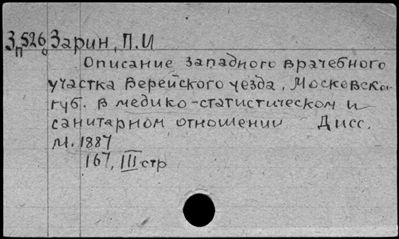 З 526 Зарин, П.И
п
Описание Западного врачебного
участка Верейского уезда, Московской
губ. в медико-статистическом и
санитарном отношении Дисс.
М. 1887
167, III стр